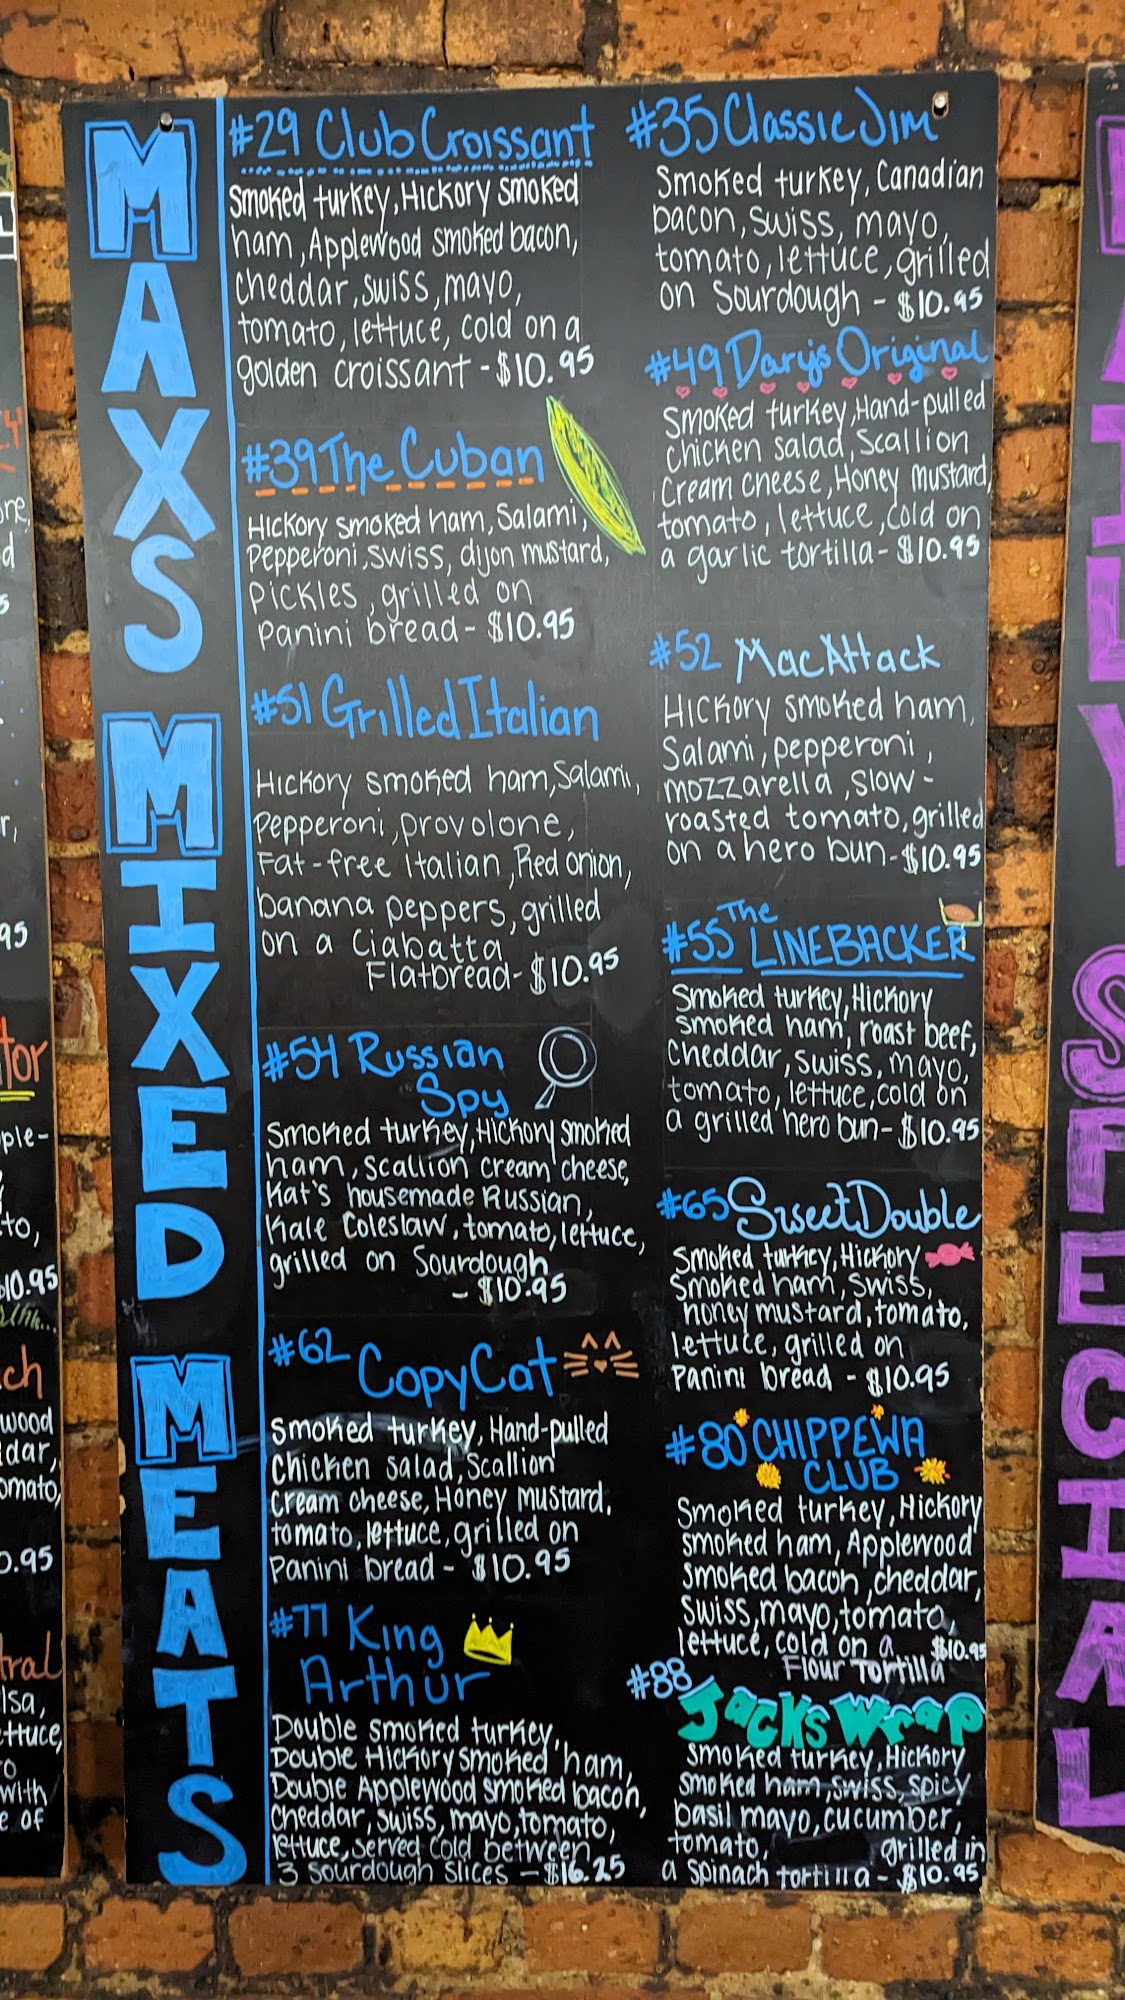 MAXS MIXED MEATS
#29 Club Croissant
Smoked turkey, Hickory smoked
ham, Applewood smoked bacon,
cheddar, swiss, mayo,
tomato, lettuce, cold on a
golden croissant - $10.95
#39 The Cuban
Hickory smoked ham, Salami,
Pepperoni, swiss, dijon mustard,
pickles, grilled on
Panini bread - $10.95
#51 Grilled Italian
Hickory smoked ham, Salami,
Pepperoni, provolone,
Fat-free Italian, Red onion,
banana peppers, grilled
on a Ciabatta
Flatbread - $10.95
#54 Russian
Spy
Smoked turkey, Hickory smoked
ham, scallion cream cheese,
Kat's housemade Russian,
Kale Coleslaw, tomato, lettuce,
grilled on Sourdough
- $10.95
#62 CopyCat
Smoked turkey, Hand-pulled
chicken salad, Scallion
Cream cheese, Honey mustard,
tomato, lettuce, grilled on
Panini bread - $10.95
#77 King
Arthur
Double smoked turkey,
Double Hickory smoked ham,
Double Applewood smoked bacon,
Cheddar, swiss, mayo, tomato,
lettuce, served cold between
3 sourdough slices - $16.25
#35 Classic Jim
Smoked turkey, Canadian
bacon, swiss, mayo,
tomato, lettuce, grilled
on Sourdough - $10.95
#49 Daryjs Original
Smoked turkey, Hand-pulled
chicken salad, Scallion
Cream cheese, Honey mustard,
tomato, lettuce, cold on
a garlic tortilla - $10.95
#52 MacAttack
Hickory smoked ham,
Salami, pepperoni,
mozzarella, slow-
roasted tomato, grilled
on a hero bun - $10.95
#55 The
LINEBACKER
Smoked turkey, Hickory
smoked ham, roast beef,
cheddar, swiss, mayo,
tomato, lettuce, cold on
a grilled hero bun - $10.95
#65 Sweet Double
Smoked turkey, Hickory
Smoked ham, swiss,
honey mustard, tomato,
lettuce, grilled on
Panini bread - $10.95
#80 CHIPPEWA
CLUB
Smoked turkey, Hickory
smoked ham, Applewood
smoked bacon, cheddar,
Swiss, mayo, tomato,
lettuce, cold on a $10.95
Flour Tortilla
#88 Jacks Wrap
Smoked turkey, Hickory
smoked ham, swiss, spicy
basil mayo, cucumber,
tomato, grilled in
a spinach tortilla - $10.95